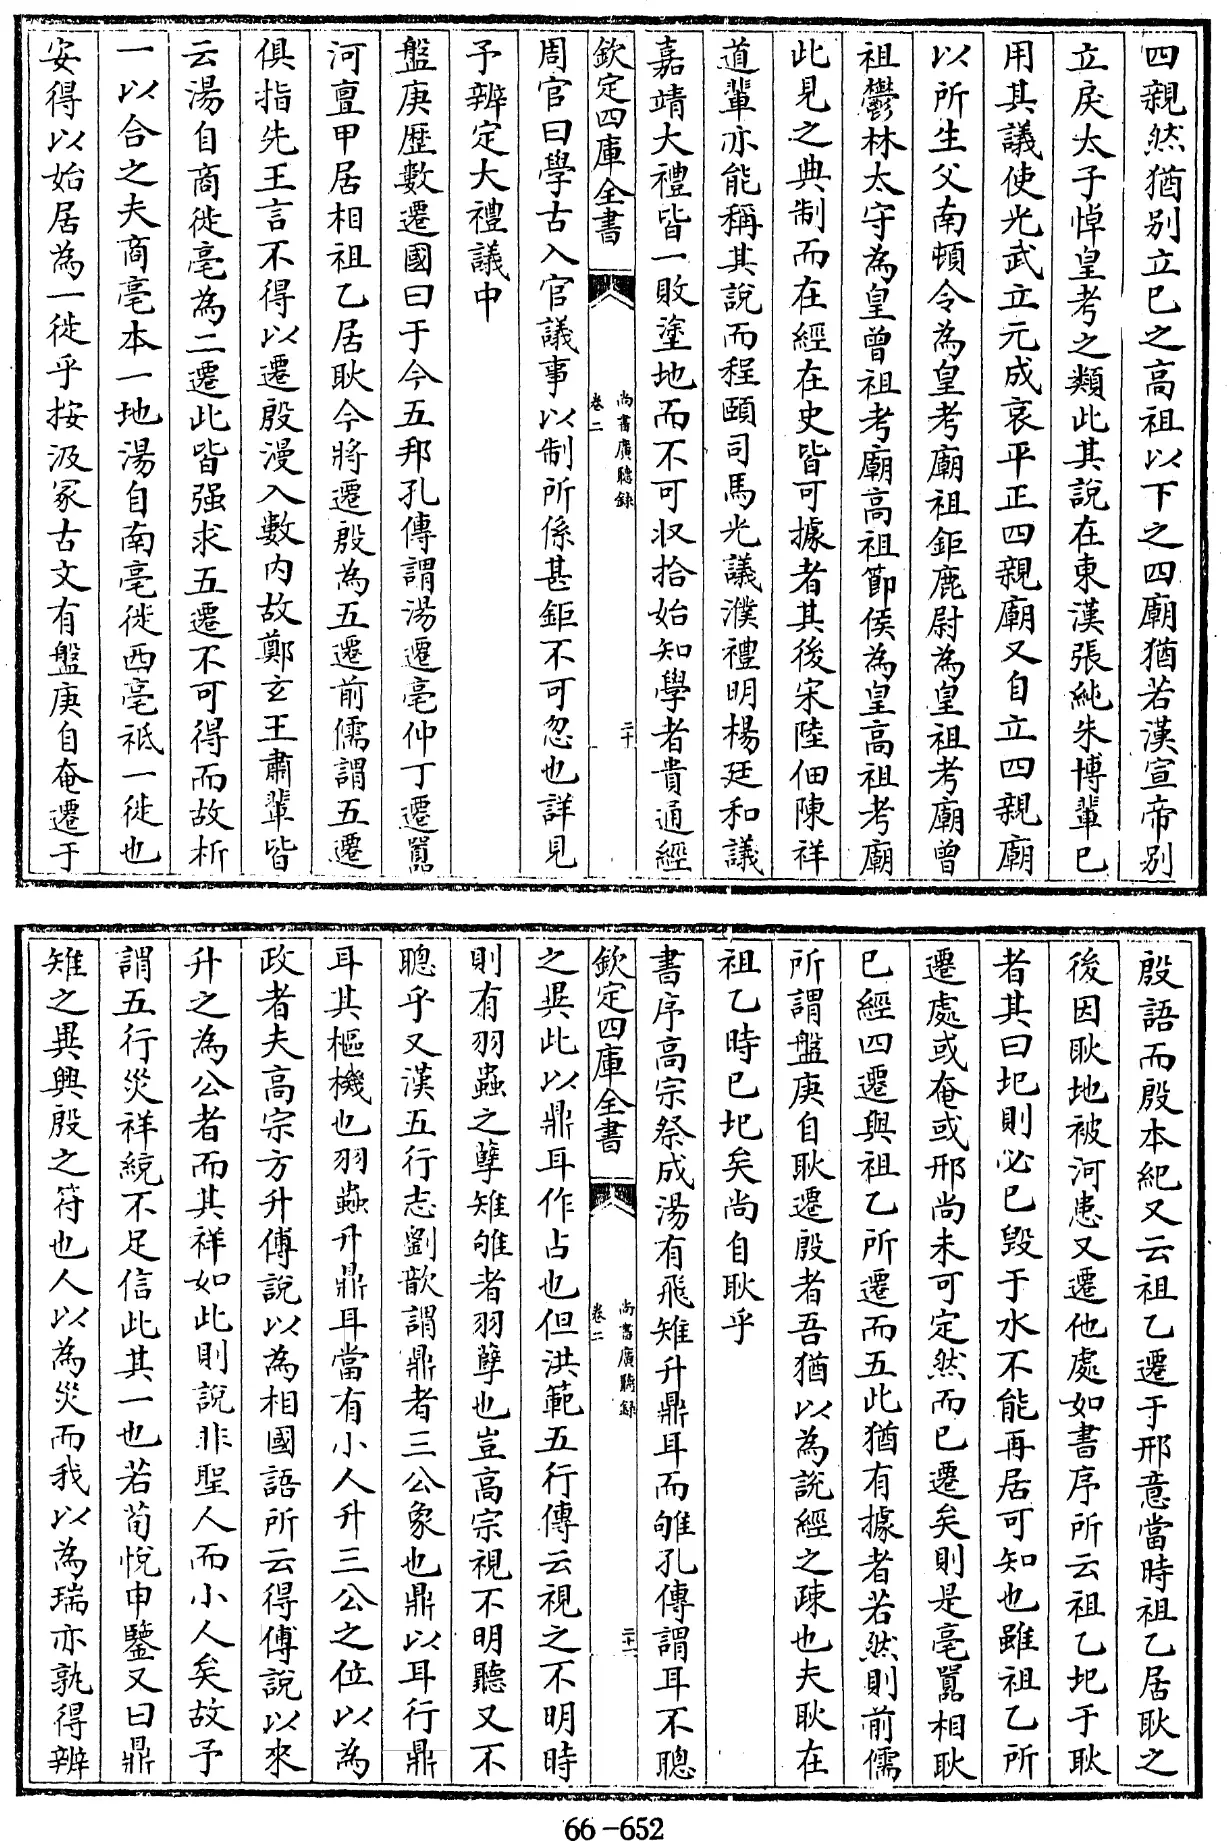 四親然猶别立已之高祖以下之四廟猶若漢宣帝别
立戾太子悼皇考之類此其說在東漢張純朱博輩已
用其議使光武立元成哀平正四親廟又自立四親廟
以所生父南頓令為皇考廟祖鉅鹿尉為皇祖考廟曾
祖鬱林太守為皇曾祖考廟高祖節侯為皇高祖考廟
此見之典制而在經在史皆可據者其後宋陸佃陳祥
道輩亦能稱其說而程頤司馬光議濮禮明楊廷和議
嘉靖大禮皆一敗塗地而不可収拾始知學者貴通經
欽定四庫全書
尚書廣聽録
卷二
二十
周官曰學古入官議事以制所係甚鉅不可忽也詳見
予辨定大禮議中
盤庚歴數遷國曰于今五邦孔傳謂湯遷亳仲丁遷囂
河亶甲居相祖乙居耿今將遷殷為五遷前儒謂五遷
俱指先王言不得以遷殷漫入數内故鄭玄王肅輩皆
云湯自商徙亳為二遷此皆强求五遷不可得而故析
一以合之夫商亳本一地湯自南亳徙西亳祗一徙也
安得以始居為一徙乎按汲冢古文有盤庚自奄遷于
殷語而殷本紀又云祖乙遷于邢意當時祖乙居耿之
後因耿地被河患又遷他處如書序所云祖乙圯于耿
者其曰圯則必已毁于水不能再居可知也雖祖乙所
遷處或奄或邢尚未可定然而已遷矣則是亳囂相耿
已經四遷與祖乙所遷而五此猶有據者若然則前儒
所謂盤庚自耿遷殷者吾猶以為説經之疎也夫耿在
祖乙時已圯矣尚自耿乎
書序高宗祭成湯有飛雉升鼎耳而雊孔傳謂耳不聰
欽定四庫全書
尚書廣聽録
卷二
二十一
之異此以鼎耳作占也但洪範五行傳云視之不明時
則有羽蟲之孽雉雊者羽孽也豈高宗視不明聽又不
聰乎又漢五行志劉歆謂鼎者三公象也鼎以耳行鼎
耳其樞機也羽蟲升鼎耳當有小人升三公之位以為
政者夫高宗方升傅說以為相國語所云得傅說以來
升之為公者而其祥如此則說非聖人而小人矣故予
謂五行災祥統不足信此其一也若荀悦申鑒又曰鼎
雉之異興殷之符也人以為災而我以為瑞亦孰得辨
66-652